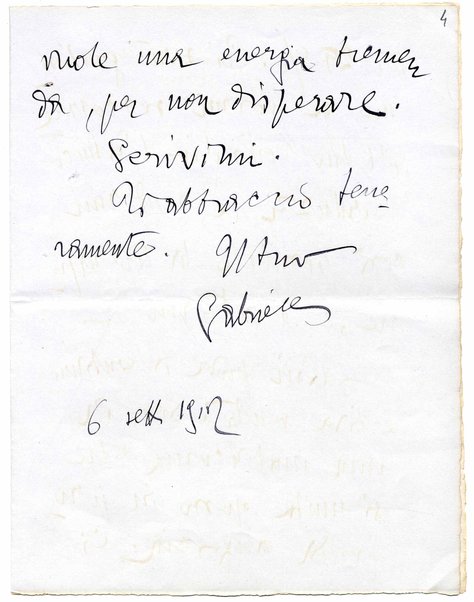 4
vuole una energia tremen
da, per non disperare.
Scrivimi.
Ti abbraccio tene=
ramente. Il tuo
Gabriele
6 sett. 1912